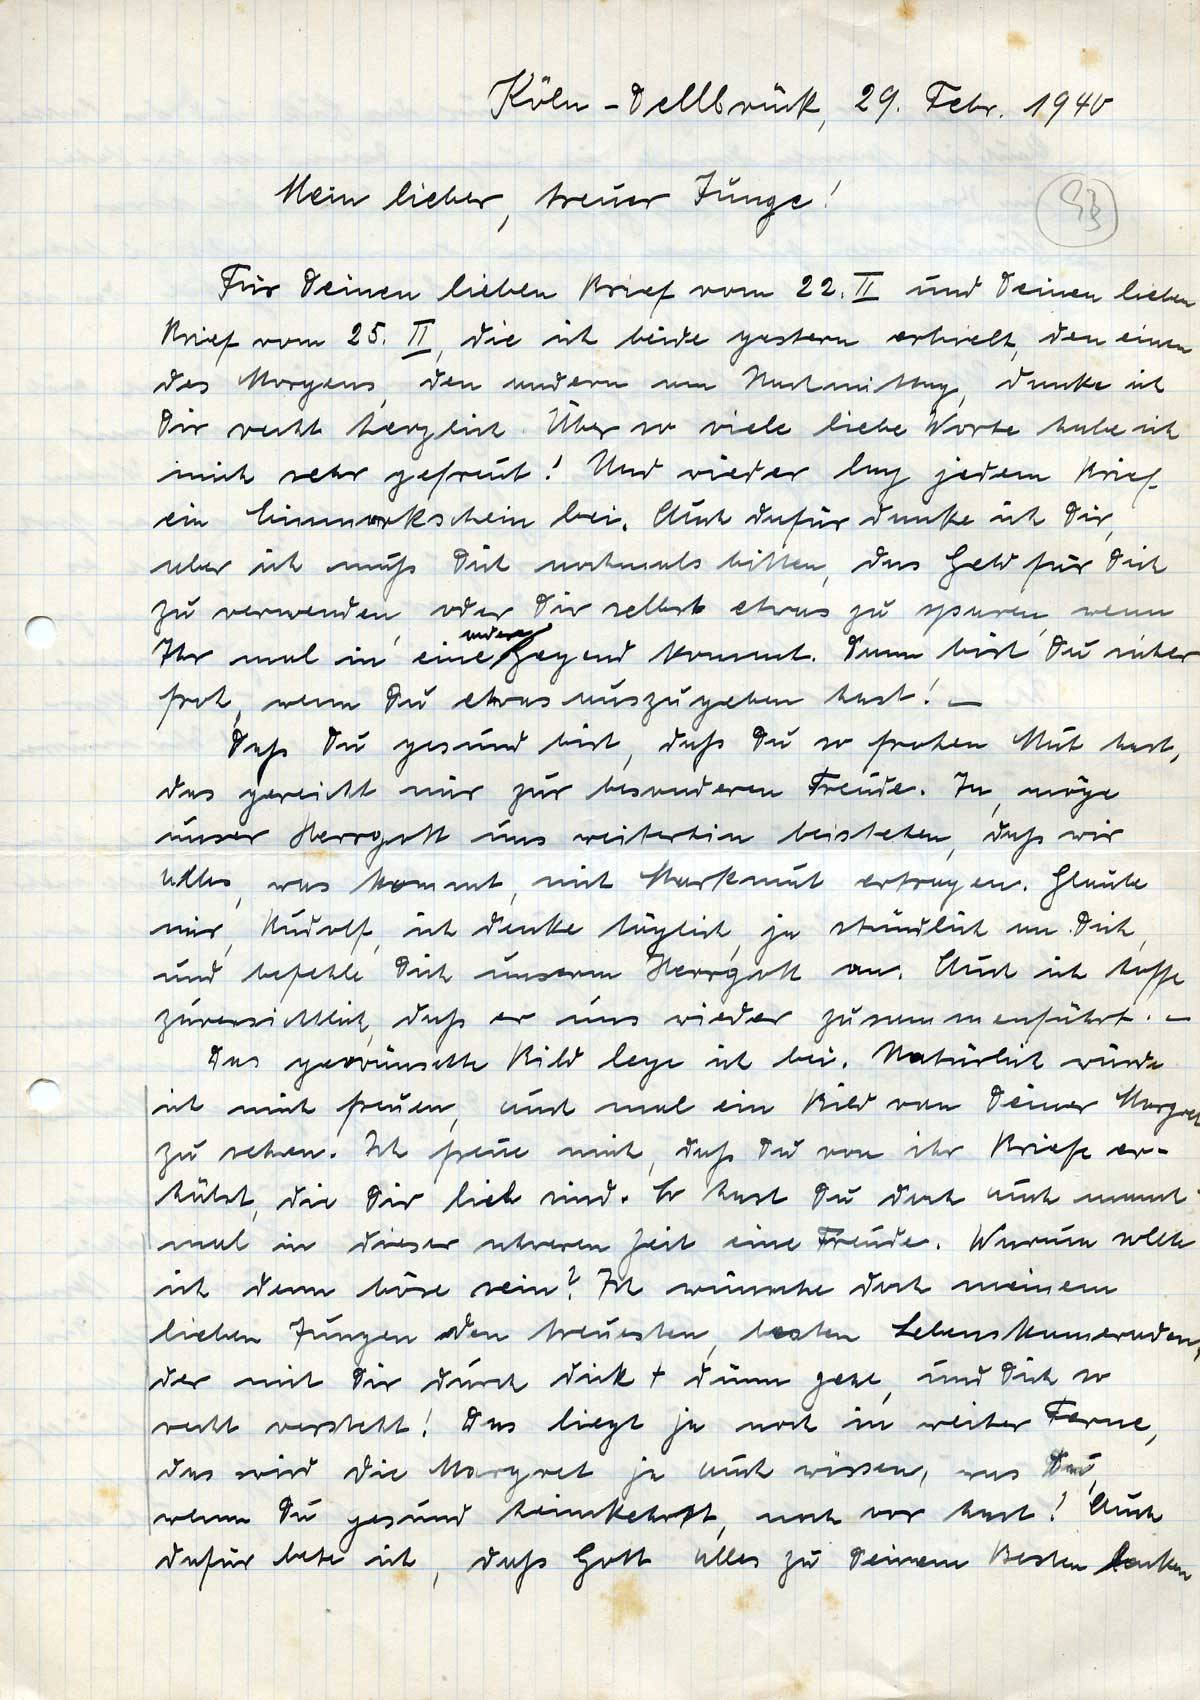 Köln-Dellbrück, 29. Febr. 1940
Mein lieber, treuer Junge!
Für Deinen lieben Brief vom 22. II und Deinen lieben
Brief vom 25. II, die ich beide gestern erhielt, den einen
des Morgens, den andern am Nachmittag, danke ich
Dir recht herzlich. Über so viele liebe Worte habe ich
mich sehr gefreut! Und wieder lag jedem Brief
ein Einmarkschein bei. Auch dafür danke ich Dir,
aber ich muß Dich nochmals bitten, das Geld für Dich
zu verwenden, oder Dir selbst etwas zu sparen, wenn
Ihr mal in eine andere Gegend kommt. Dann bist Du sicher
froh, wenn Du etwas auszugeben hast! —
Daß Du gesund bist, daß Du so frohen Mut hast,
das gereicht mir zur besonderen Freude. Ja, möge
unser Herrgott uns weiterhin beistehen, daß wir
alles, was kommt, mit Starkmut ertragen. Glaube
mir, Rudolf, ich denke täglich, ja stündlich an Dich,
und befehle Dich unserm Herrgott an. Auch ich hoffe
zuversichtlich, daß er uns wieder zusammenführt. —
Das gewünschte Bild lege ich bei. Natürlich würde
ich mich freuen, auch mal ein Bild von Deiner Margret
zu sehen. Ich freue mich, daß Du von ihr Briefe er-
hälst, die Dir lieb sind. So hast Du doch auch manch-
mal in dieser schweren Zeit eine Freude. Warum sollte
ich denn böse sein? Ich wünsche doch meinem
lieben Jungen den treuesten, besten Lebenskameraden,
der mit Dir durch dick + dünn geht, und Dich so
recht versteht! Das liegt ja noch in weiter Ferne,
das wird die Margret ja auch wissen, was Du,
wenn Du gesund heimkehrst, noch vor hast! Auch
dafür bete ich, daß Gott alles zu Deinem Besten lenken